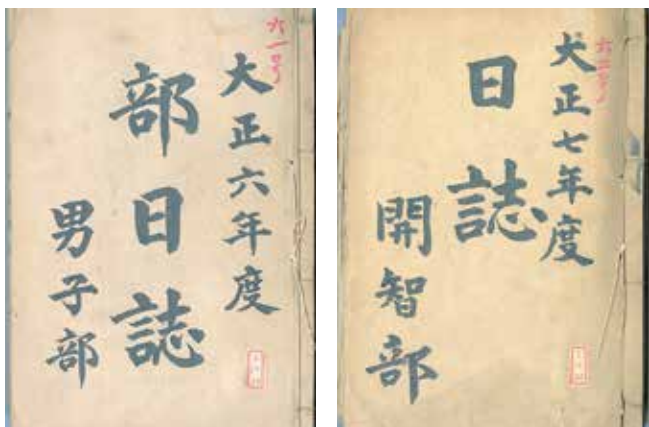 大正六年度
部日誌
男子部
六一号
大正七年度
日誌
開智部